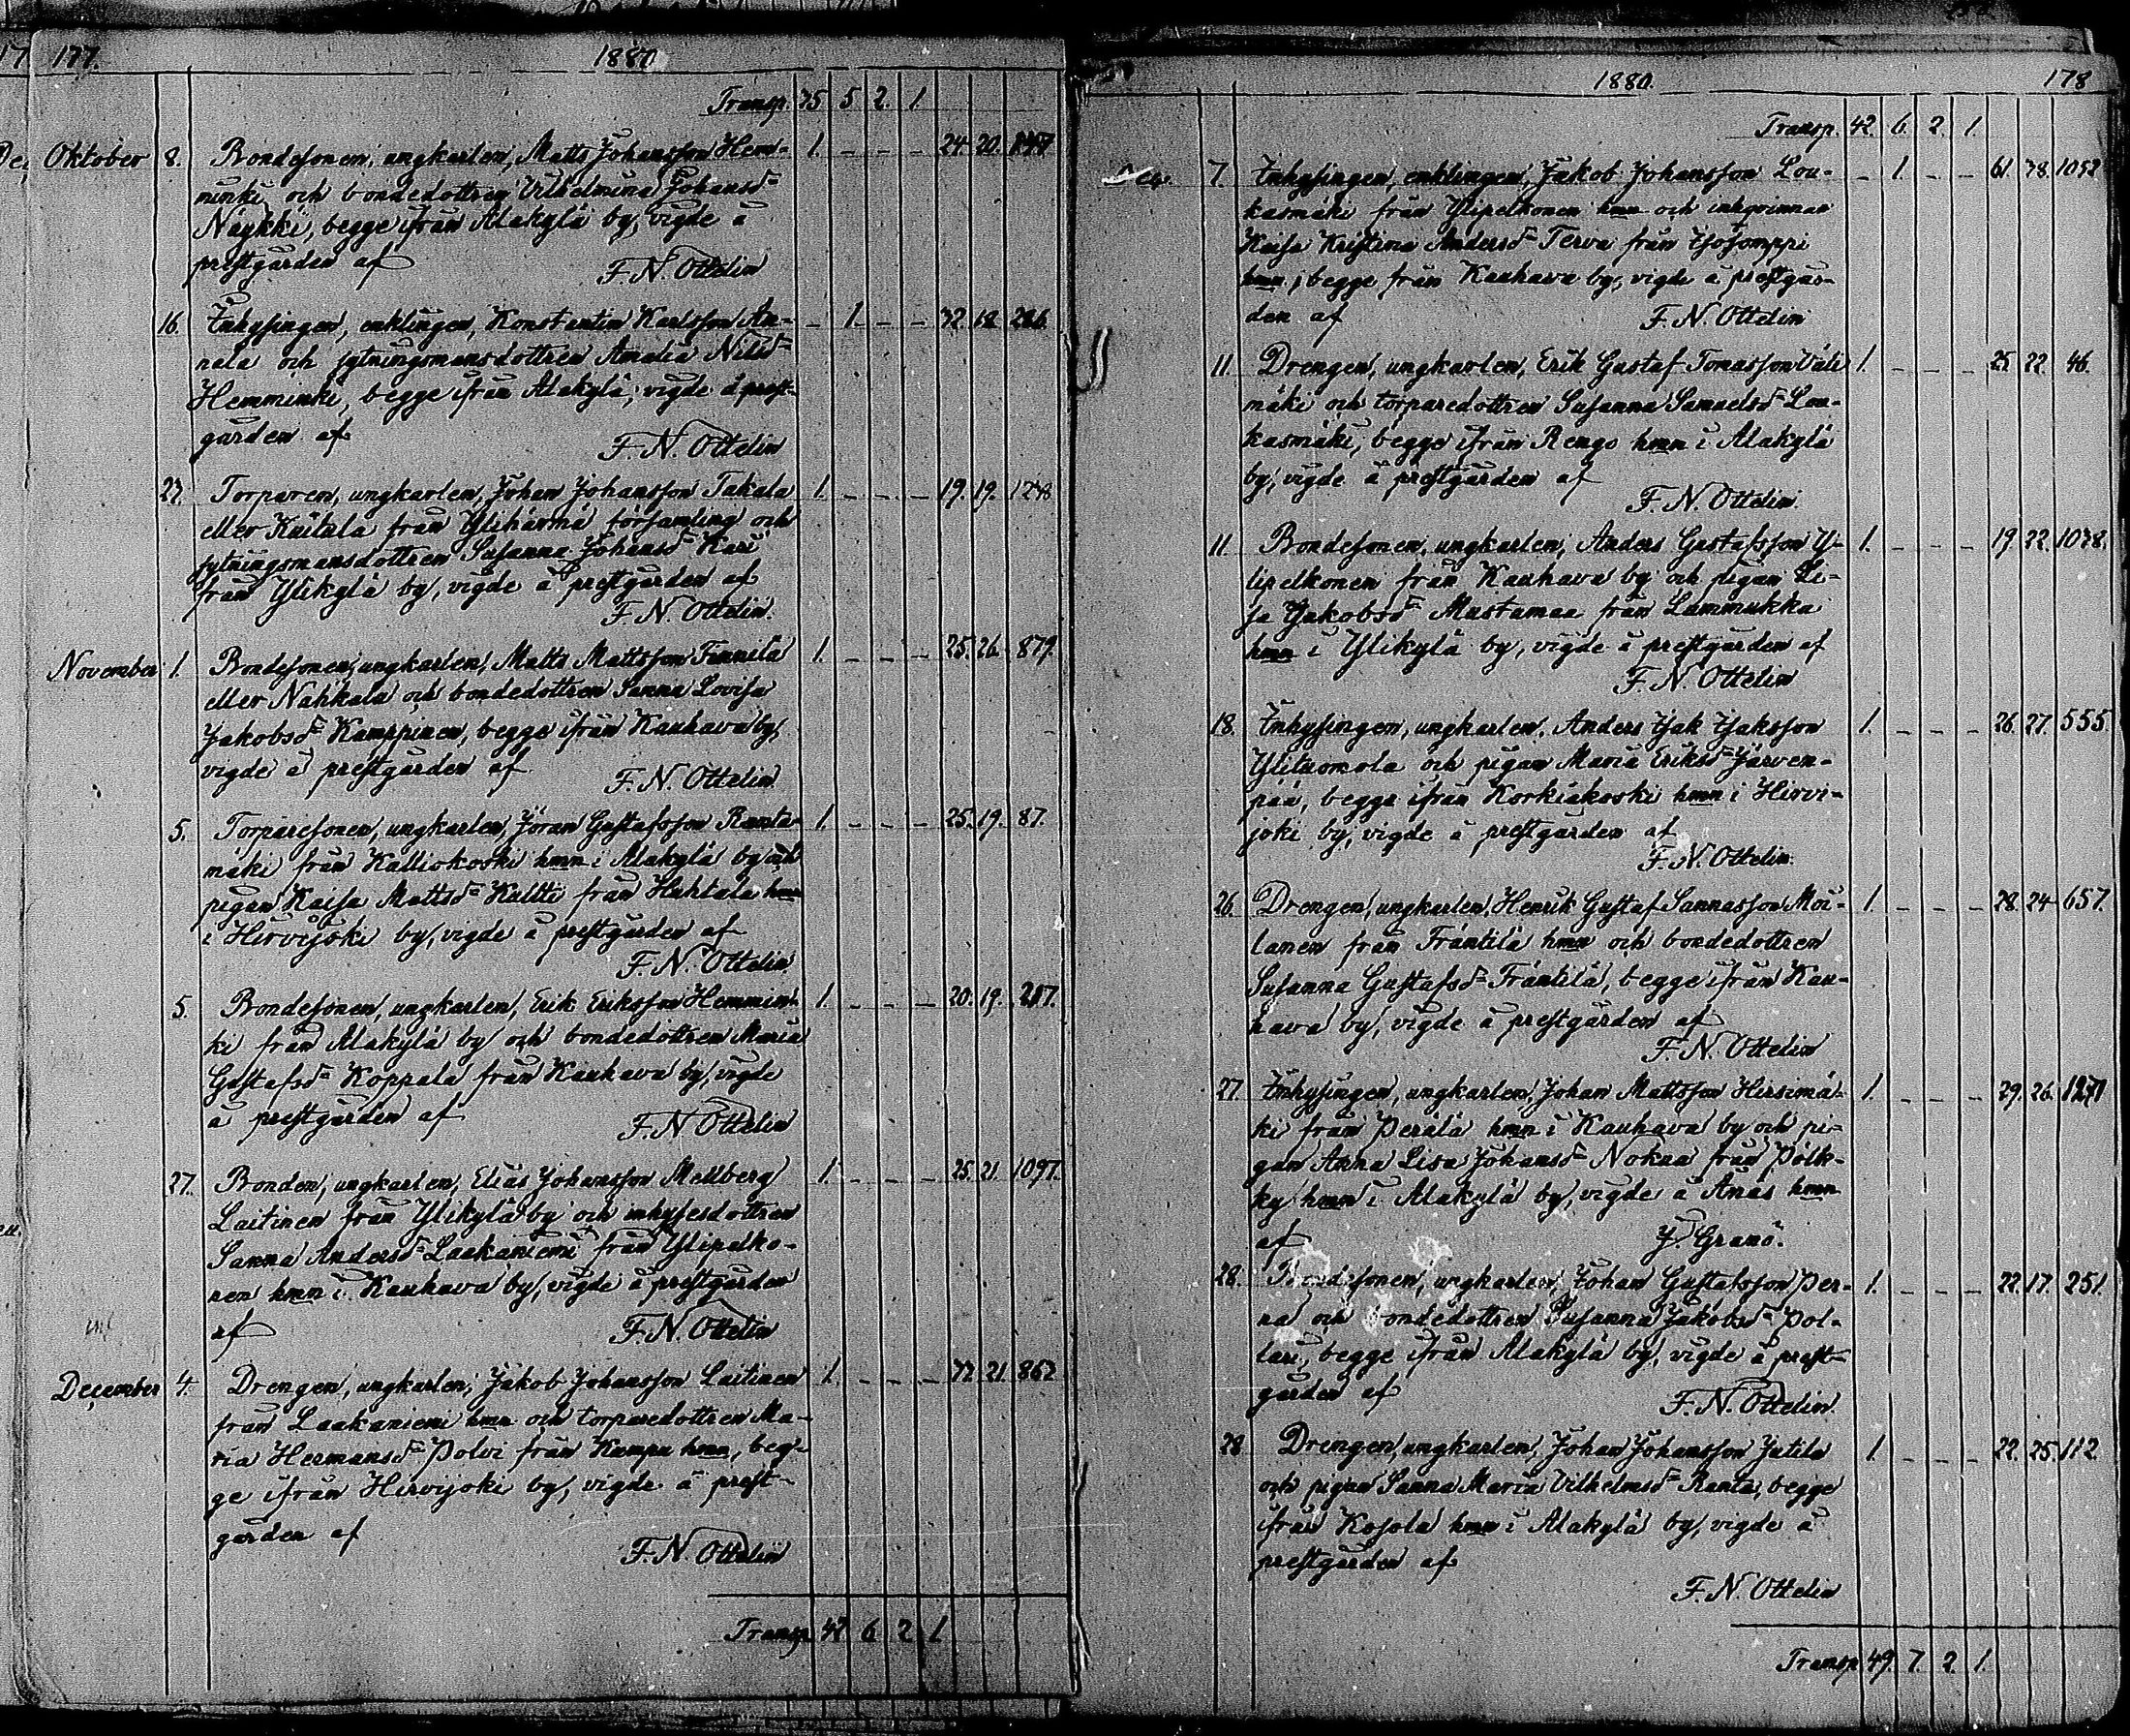 177. 1880
Transp. 35 5 2. 1.
Oktober 8. Bondesonen, ungkarlen, Matts Johansson Hem- 1. – – – 24. 20.
minki och bondedottren Vilhelmina Johansd=
Näykki, begge ifrån Alakylä by, vigde å
prestgården af
F. N. Ottelin
16. Inhysingen, enklingen, Konstantin Karlsson An- – 1. – – 32. 18. 286.
nala och sytningsmansdottren Amalia Nilsd=
Hemminki, begge ifrån Alakylä, vigde å prest-
gården af
F. N. Ottelin
27. Torparen, ungkarlen, Johan Johansson Takala 1. – – – 19. 19. 1248
eller Knitala från Ylihärmä församling och
sytningsmansdottren Susanna Johansd= Kari
från Ylikylä by, vigde å prestgården af
F. N. Ottelin.
November 1. Bondesonen, ungkarlen, Matts Mattsson Finnilä 1. – – – 25. 26. 879.
eller Nahkala och bondedottren Sanna Lovisa
Jakobsd= Kamppinen, begge ifrån Kauhava by,
vigde å prestgården af
F. N. Ottelin.
5. Torparesonen, ungkarlen, Jöran Gustafsson Ranta- 1. – – – 25. 19. 87.
mäki från Kalliokoski hmn i Alakylä by och
pigan Kaisa Mattsd= Kultti från Huhtala hmn
i Hirvijoki by, vigde å prestgården af
F. N. Ottelin.
5. Bondesonen, ungkarlen, Erik Eriksson Hemmin- 1. – – – 20. 19. 217.
ki från Alakylä by och bondedottren Maria
Gustafsd= Koppala från Kauhava by, vigde
å prestgården af
F. N. Ottelin
27. Bonden, ungkarlen, Elias Johansson Mellberg 1. – – – 25. 21. 1097.
Laitinen från Ylikylä by och inhysesdottren
Sanna Andersd= Laakaniemi från Ylipelko-
nen hmn i Kauhava by, vigde å prestgården
af
F. N. Ottelin
December 4. Drengen, ungkarlen, Jakob Johansson Laitinen 1. – – – 32. 21. 862
från Laakaniemi hmn och torparedottren Ma-
ria Hermansd= Polvi från Kumpu hmn, beg-
ge ifrån Hirvijoki by, vigde å prest-
gården af
F. N. Ottelin
Transp 42 6 2 1
1880. 178
Transp. 42. 6. 2. 1.
Dec. 7. Inhysingen, enklingen, Jakob Johansson Lou- – 1. – – 61. 38. 1052
kasmäki från Ylipelkonen hmn och inhqvinnan
Kaisa Kristina Andersd= Terva från Isosomppi
hmn, begge från Kauhava by, vigde å prestgår-
den af
F. N. Ottelin
11. Drengen, ungkarlen, Erik Gustaf Tomasson Väli 1. – – – 25. 22. 46.
mäki och torparedottren Susanna Samuelsd= Lou-
kasmäki, begge ifrån Rengo hmn i Alakylä
by, vigde å prestgården af
F. N. Ottelin.
11. Bondesonen, ungkarlen, Anders Gustafsson Y- 1. – – – 19. 22. 1038.
lipelkonen från Kauhava by och pigan Li-
sa Jakobsd= Mustamaa från Lammukka
hmn i Ylikylä by, vigde å prestgården af
F. N. Ottelin
18. Inhysingen, ungkarlen, Anders Isak Isaksson 1. – – – 26. 27. 555.
Ylituomola och pigan Maria Eriksd= Järven-
pää, begge ifrån Korkiakoski hmn i Hirvi-
joki by, vigde å prestgården af
F. N. Ottelin.
26. Drengen, ungkarlen, Henrik Gustaf Sannasson Moi- 1. – – – 28. 24 657.
lanen från Fräntilä hmn och bondedottren
Susanna Gustafsd= Fräntilä, begge ifrån Kau-
hava by, vigde å prestgården af
F. N. Ottelin
27. Inhysingen, ungkarlen, Johan Mattsson Hirsimä- 1. – – – 29. 26.
ki från Perälä hmn i Kauhava by och pi-
gan Anna Lisa Johansd= Nokua från Pölk-
ky hmn i Alakylä by, vigde å Anäs hmn
af
J. Granö.
28. Bondesonen, ungkarlen, Johan Gustafsson Per- 1. – – – 22. 17. 251.
na och bondedottren Susanna Jakobsd= Pol-
lari, begge ifrån Alakylä by, vigde å prest-
gården af
F. N. Ottelin.
28 Drengen, ungkarlen, Johan Johansson Jutila 1. – – – 22. 25. 112.
och pigan Sanna Maria Vilhelmsd= Ranta, begge
ifrån Kosola hmn i Alakylä by, vigde å
prestgården af
F. N. Ottelin
Transp 49. 7. 2. 1.